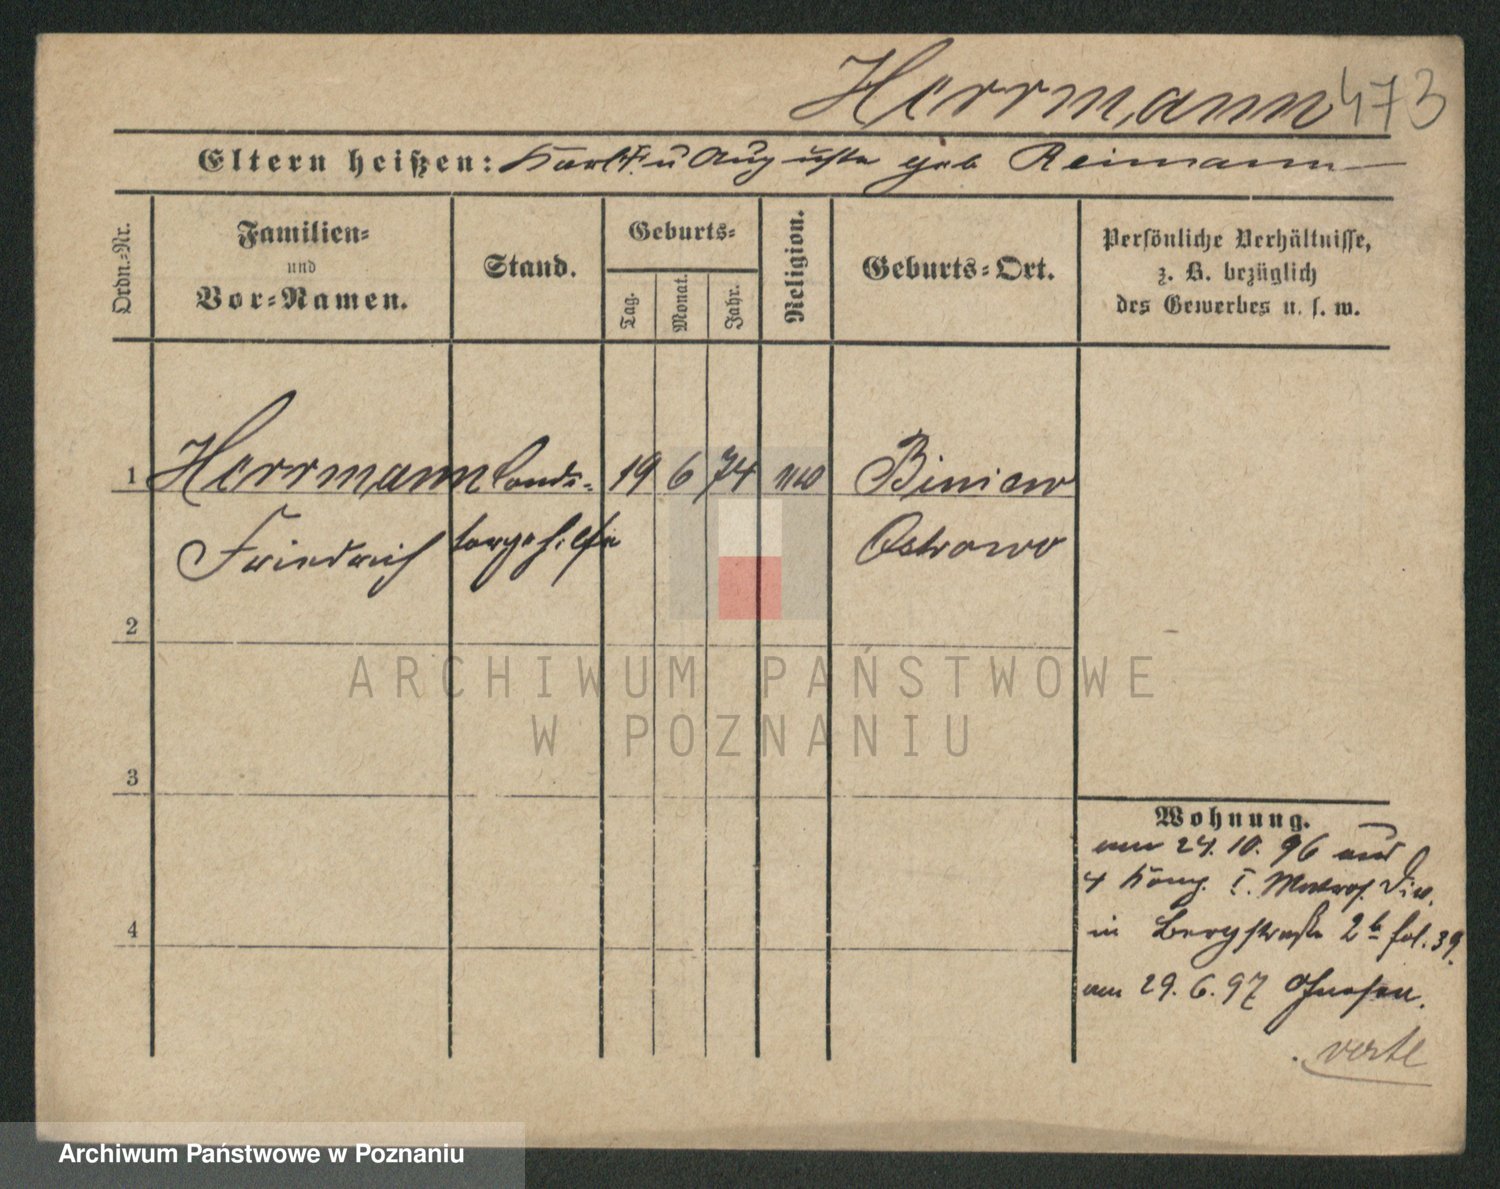 Herrmann 473
Eltern heißen: Karl F. u Auguste geb Reimann
Ordn.-Nr.
Familien-
und
Vor-Namen.
Stand.
Geburts-
Tag.
Monat.
Jahr.
Religion.
Geburts-Ort.
Persönliche Verhältnisse,
z. B. bezüglich
des Gewerbes u. s. w.
1 Herrmann 19 6 74 Biniew
Friedrich Ostrowo
2
3
4
Wohnung.
am 24.10.96 aus
König. I. Matros. Div.
in Bergstraße 2b fol. 39.
am 29.6.97 Gnesen.
verte
ARCHIWUM PAŃSTWOWE
W POZNANIU
Archiwum Państwowe w Poznaniu